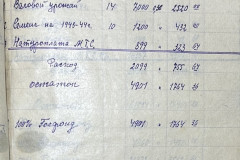 Валовой урожай 14 7000 - 2520
Семена на 1943-44г. 10 1200 - 432
Натуроплата МТС 899 - 323
Расход 2099 - 755
Остаток 4901 - 1764
100% Госфонд 4901 - 1764